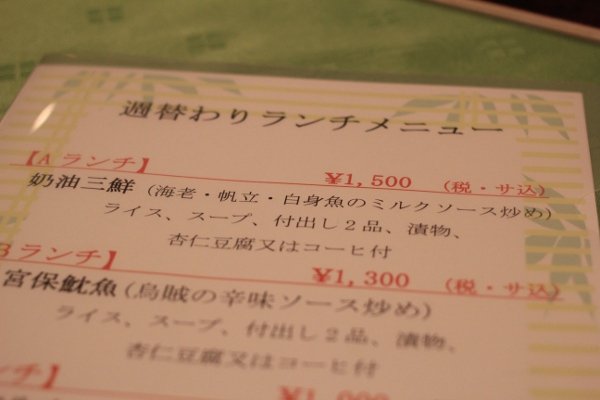 週替わりランチメニュー
【Aランチ】 ¥1,500 (税・サ込)
奶油三鮮 (海老・帆立・白身魚のミルクソース炒め)
ライス、スープ、付出し2品、漬物、
杏仁豆腐又はコーヒ付
Bランチ】 ¥1,300 (税・サ込)
宮保魷魚 (烏賊の辛味ソース炒め)
ライス、スープ、付出し2品、漬物、
杏仁豆腐又はコーヒ付
ンチ】